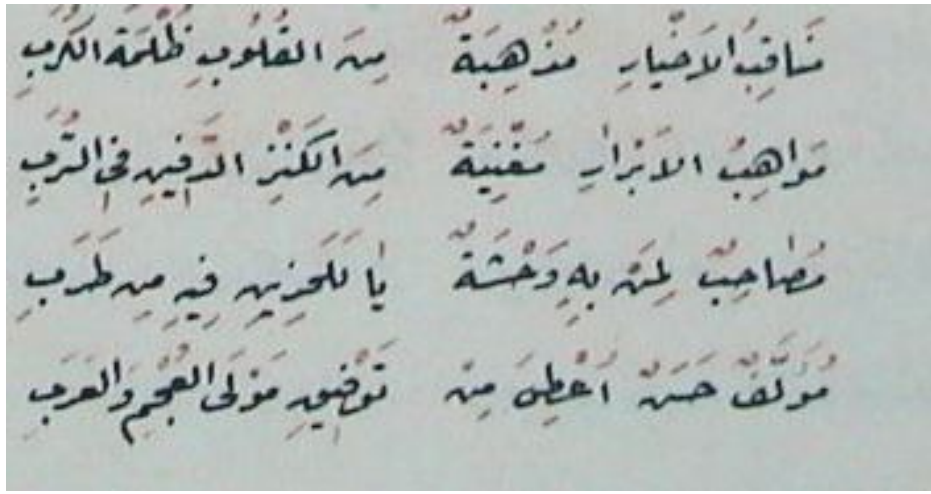 مَنَاقِبُ الاَخْيَارِ مُذْهِبَةٌ مِنَ القُلُوبِ ظُلْمَةَ الكُرَبِ
مَوَاهِبُ الاَبْرَارِ مُغْنِيَةٌ مِنَ الكَنْزِ الدَّفِينِ فِي التُّرَبِ
مُصَاحِبٌ لِمَنْ بِهِ وَحْشَةٌ يَا لَلْحَزِينِ فِيهِ مِن طَرَبِ
مُؤَلَّفٌ حَسَنٌ اُعْطِيَ مِنْ تَوْفِيقِ مَوْلَى العُجْمِ وَالعَرَبِ